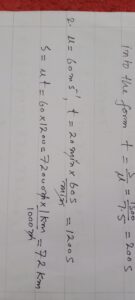 into the form t = s/u = 1500/7.5 = 200s
2. u = 60ms⁻¹, t = 20min x 60s/min = 1200s
s = ut = 60 x 1200 = 72000m x 1km/1000m = 72km